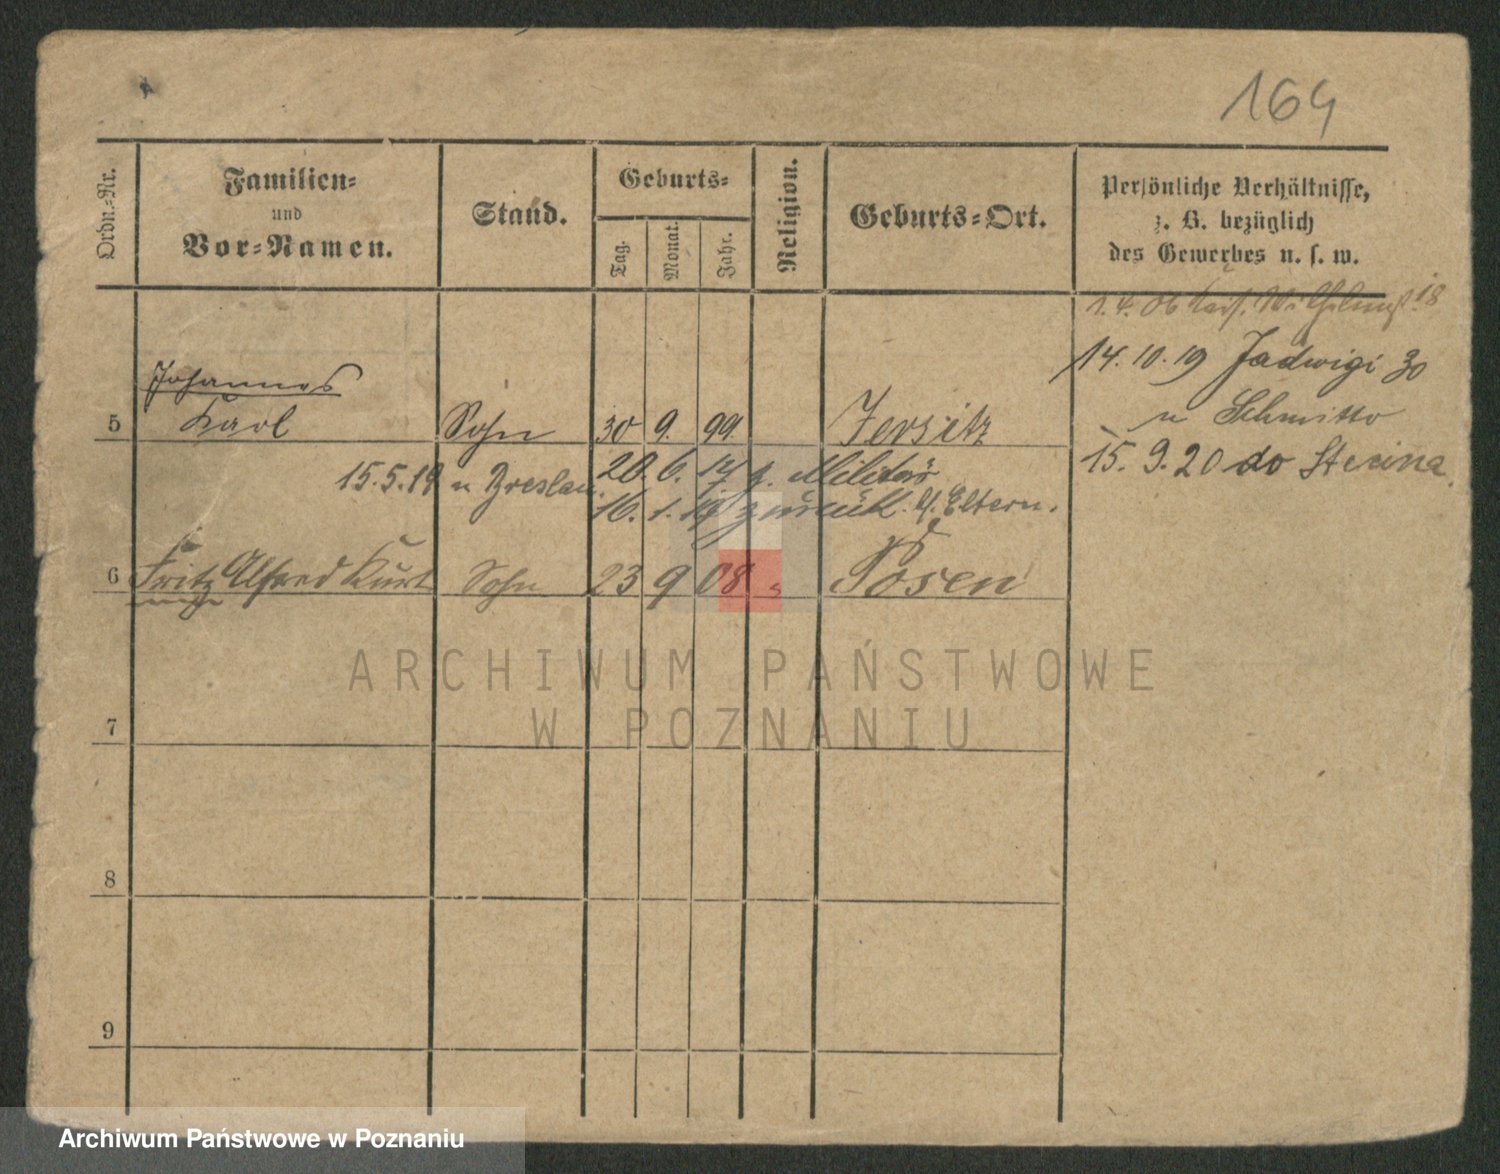 164
Ordn.-Nr.
Familien-
und
Vor-Namen.
Stand.
Geburts-
Tag.
Monat.
Jahr.
Religion.
Geburts-Ort.
Persönliche Verhältnisse,
z. B. bezüglich
des Gewerbes u. s. w.
1. 4. 06 18
14. 10. 19 Jadwigi 30
n Schmitto
15. 9. 20 do
Johannes
5 Karl Sohn 30 9. 99. Jersitz
15. 5. 19 n Breslau.
20. 6. 17 z. Militär
16. 1. 19 zurück. Eltern.
6 Fritz Alfred Kurt Sohn 23 9 08 " Posen
7
8
9
ARCHIWUM PAŃSTWOWE
W POZNANIU
Archiwum Państwowe w Poznaniu